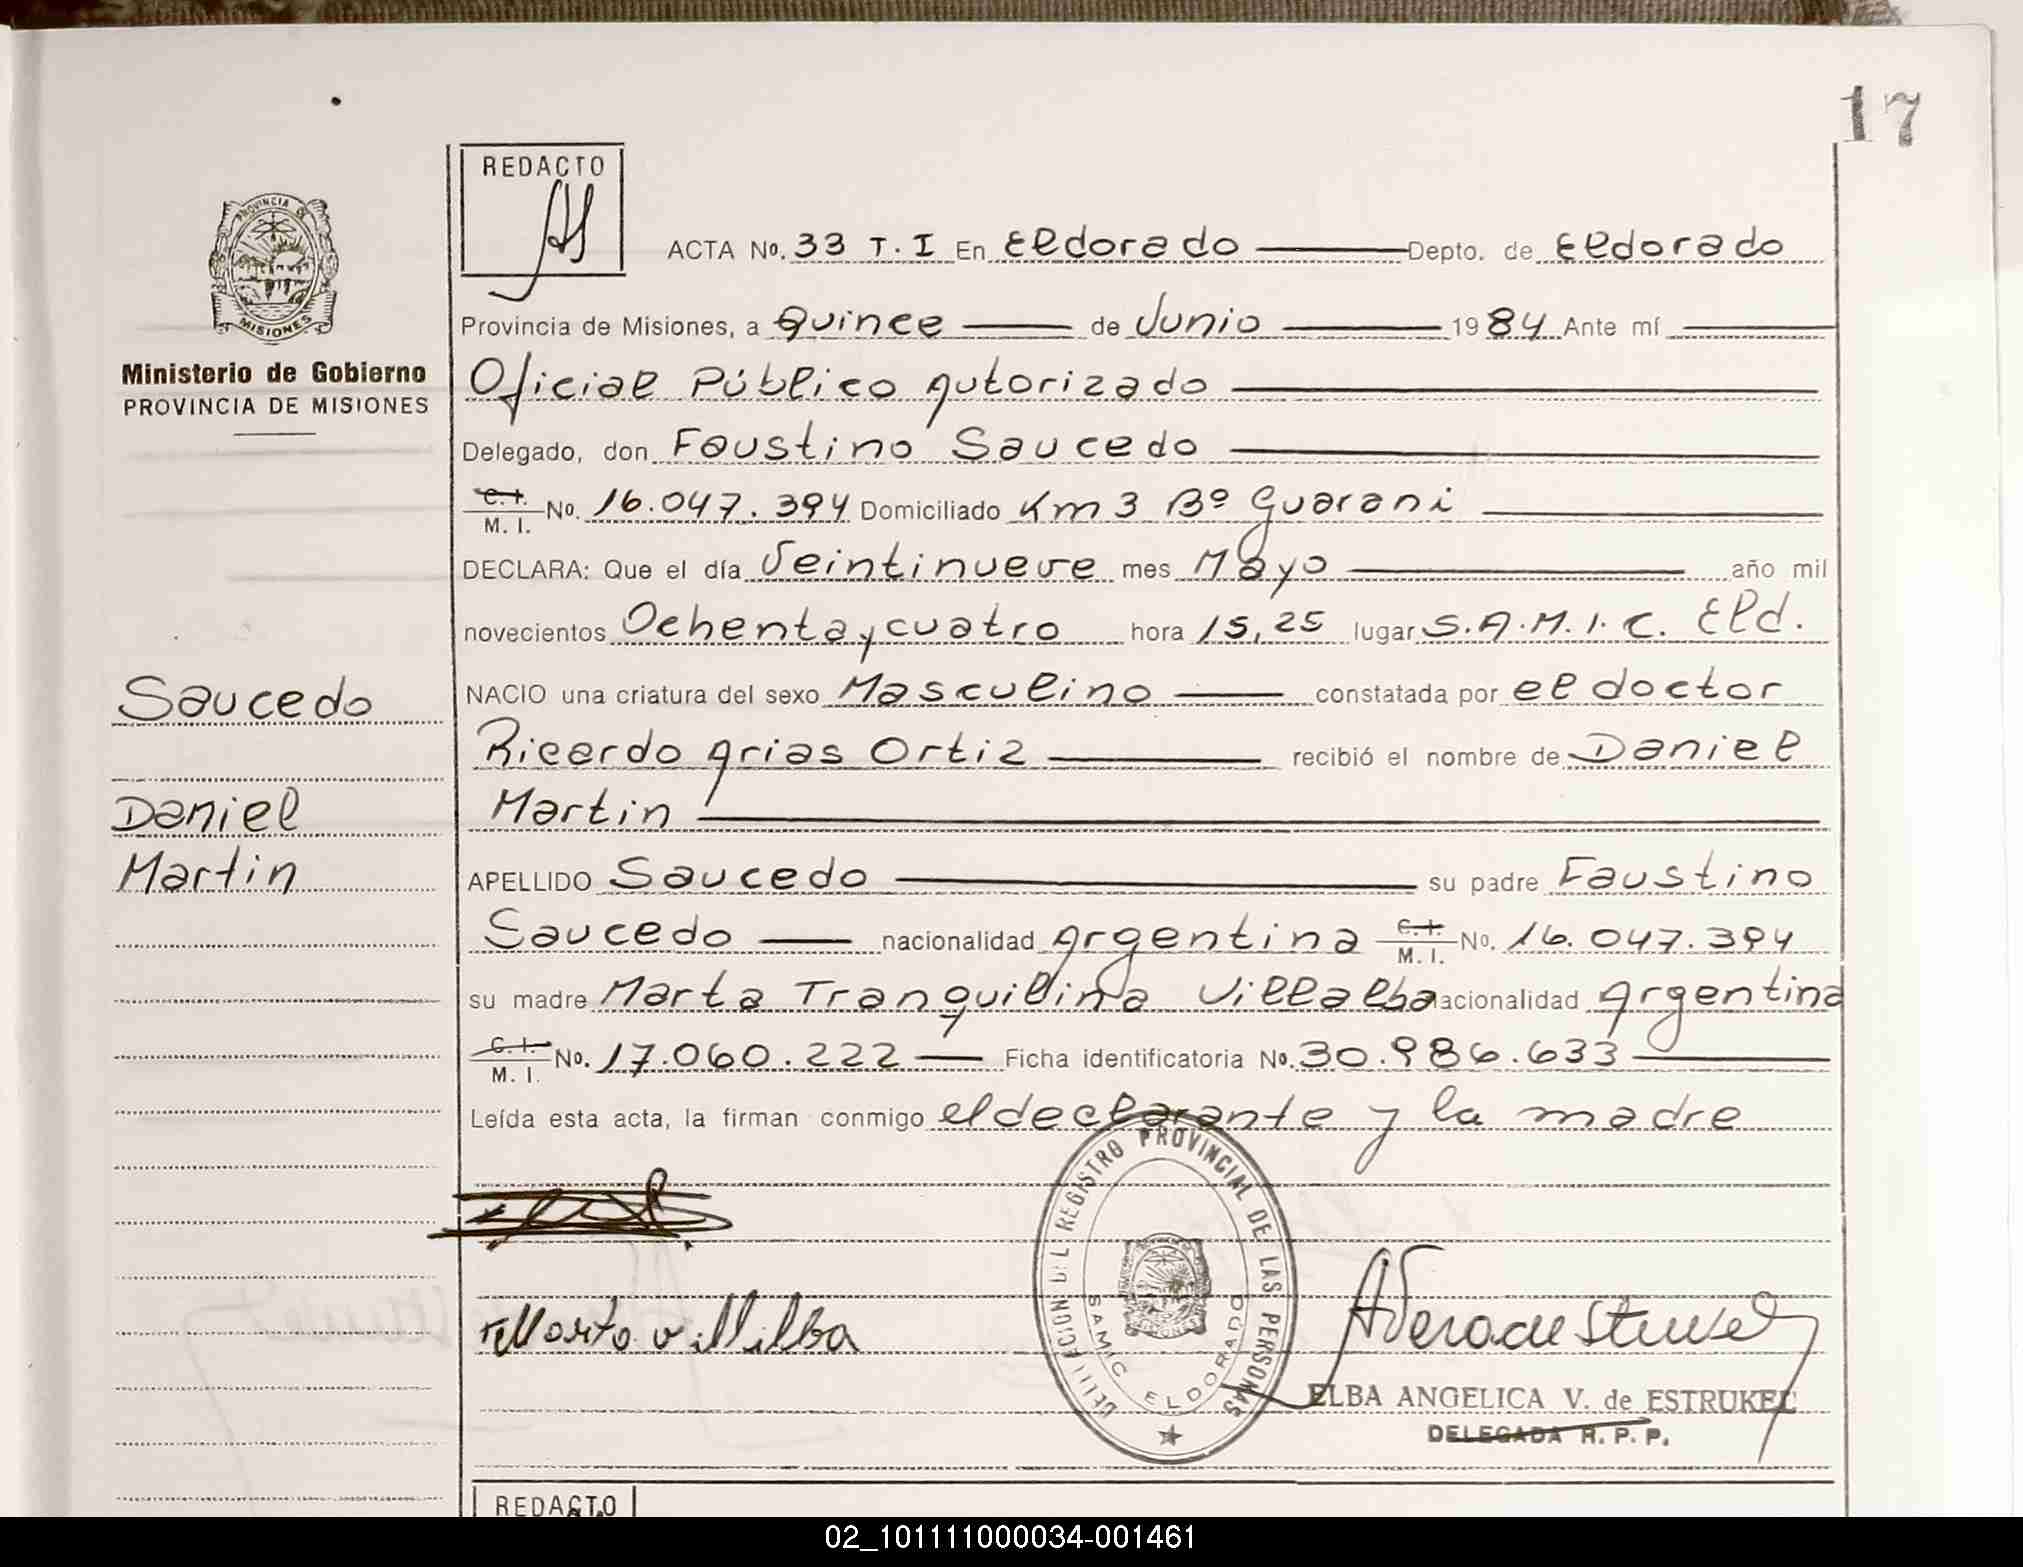 17
REDACTO
PROVINCIA DE
MISIONES
Ministerio de Gobierno
PROVINCIA DE MISIONES
ACTA No. 33 T. I En Eldorado Depto. de Eldorado
Provincia de Misiones, a Quince de Junio 1984 Ante mí
Oficial Público Autorizado
Delegado, don Faustino Saucedo
C. I.
M. I. No. 16.047.394 Domiciliado Km 3 Bº Guarani
DECLARA: Que el día Veintinueve mes Mayo año mil
novecientos Ochenta y cuatro hora 15,25 lugar S.A.M.I.C. Eld.
NACIO una criatura del sexo Masculino constatada por el doctor
Ricardo Arias Ortiz recibió el nombre de Daniel
Martin
APELLIDO Saucedo su padre Faustino
Saucedo nacionalidad Argentina C. I. M. I. No. 16.047.394
su madre Marta Tranquilina Villalba nacionalidad Argentina
C. I.
M. I. No. 17.060.222 Ficha identificatoria No. 30.986.633
Leída esta acta, la firman conmigo el declarante y la madre
Saucedo
Daniel
Martin
DEL REGISTRO PROVINCIAL DE LAS PERSONAS
SAMIC ELDORADO
ELBA ANGELICA V. de ESTRUKEL
DELEGADA R. P. P.
REDACTO
02_101111000034-001461